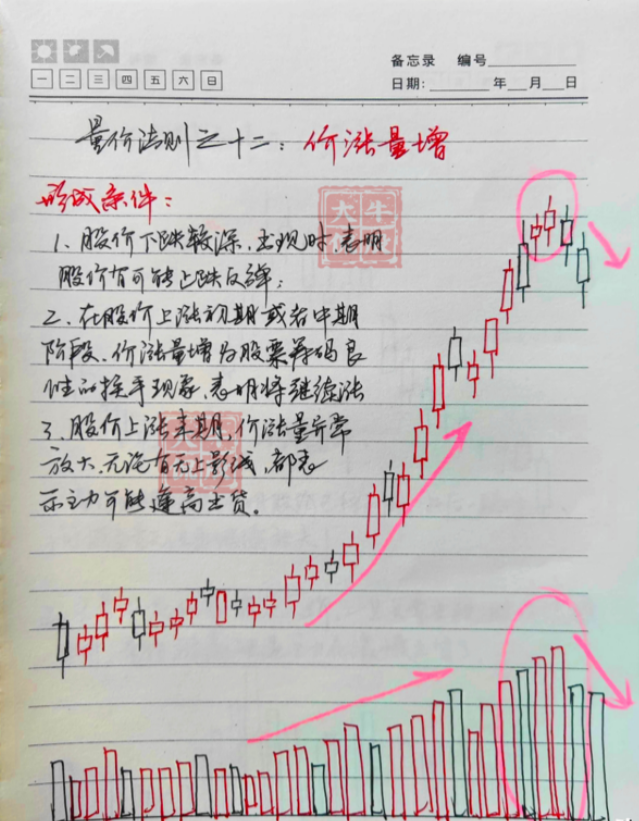 备忘录 编号
一 二 三 四 五 六 日
日期: 年 月 日
量价法则之十二：价涨量增
形成条件：
1、股价下跌较深，出现时，表明
股价有可能上跌反弹；
2、在股价上涨初期或者中期
阶段，价涨量增为股票筹码良
性的换手现象，表明将继续涨
3、股价上涨末期，价涨量异常
放大，无论有无上影线，都表
示主力可能逢高出货。
大牛